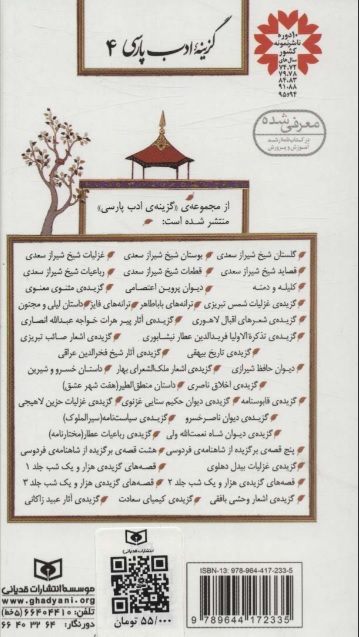 گزینهٔ ادب پارسی ۴
۱۰ دوره
ناشر نمونه
کشور
سال‌های
۷۲،۷۳
۷۹،۷۸
۸۴،۸۳
۹۱،۸۸
۹۵،۹۴
معرفی شده
در کتاب‌نامه رشد
آموزش و پرورش
از مجموعه‌ی «گزینه‌ی ادب پارسی»
منتشر شده است:
گلستان شیخ شیراز سعدی بوستان شیخ شیراز سعدی غزلیات شیخ شیراز سعدی
قصاید شیخ شیراز سعدی قطعات شیخ شیراز سعدی رباعیات شیخ شیراز سعدی
کلیله و دمنه دیوان پروین اعتصامی گزیده‌ی مثنوی معنوی
گزیده‌ی غزلیات شمس تبریزی ترانه‌های باباطاهر ترانه‌های فایز داستان لیلی و مجنون
گزیده‌ی شعرهای اقبال لاهوری گزیده‌ی آثار پیر هرات خواجه عبدالله انصاری
گزیده‌ی تذکرةالاولیا فریدالدین عطار نیشابوری گزیده‌ی اشعار صائب تبریزی
گزیده‌ی تاریخ بیهقی گزیده‌ی آثار شیخ فخرالدین عراقی
دیوان حافظ شیرازی گزیده‌ی اشعار ملک‌الشعرای بهار داستان خسرو و شیرین
گزیده‌ی اخلاق ناصری داستان منطق‌الطیر(هفت شهر عشق)
گزیده‌ی قابوسنامه گزیده‌ی دیوان حکیم سنایی غزنوی گزیده‌ی غزلیات حزین لاهیجی
گزیده‌ی دیوان ناصرخسرو گزیده‌ی سیاست‌نامه(سیرالملوک)
گزیده‌ی دیوان شاه نعمت‌الله ولی گزیده‌ی رباعیات عطار(مختارنامه)
پنج قصه‌ی برگزیده از شاهنامه‌ی فردوسی هشت قصه‌ی برگزیده از شاهنامه‌ی فردوسی
گزیده‌ی غزلیات بیدل دهلوی قصه‌های گزیده‌ی هزار و یک شب جلد ۱
قصه‌های گزیده‌ی هزار و یک شب جلد ۲ قصه‌های گزیده‌ی هزار و یک شب جلد ۳
گزیده‌ی اشعار وحشی بافقی گزیده‌ی کیمیای سعادت گزیده‌ی آثار عبید زاکانی
موسسه انتشارات قدیانی
www.ghadyani.org
تلفن: ۶۶۴۰۴۴۱۰ (۵خط)
دورنگار: ۶۶۴۰۳۲۶۴
انتشارات قدیانی
۵۵/۰۰۰ تومان
ISBN-13: 978-964-417-233-5
9 789644 172335